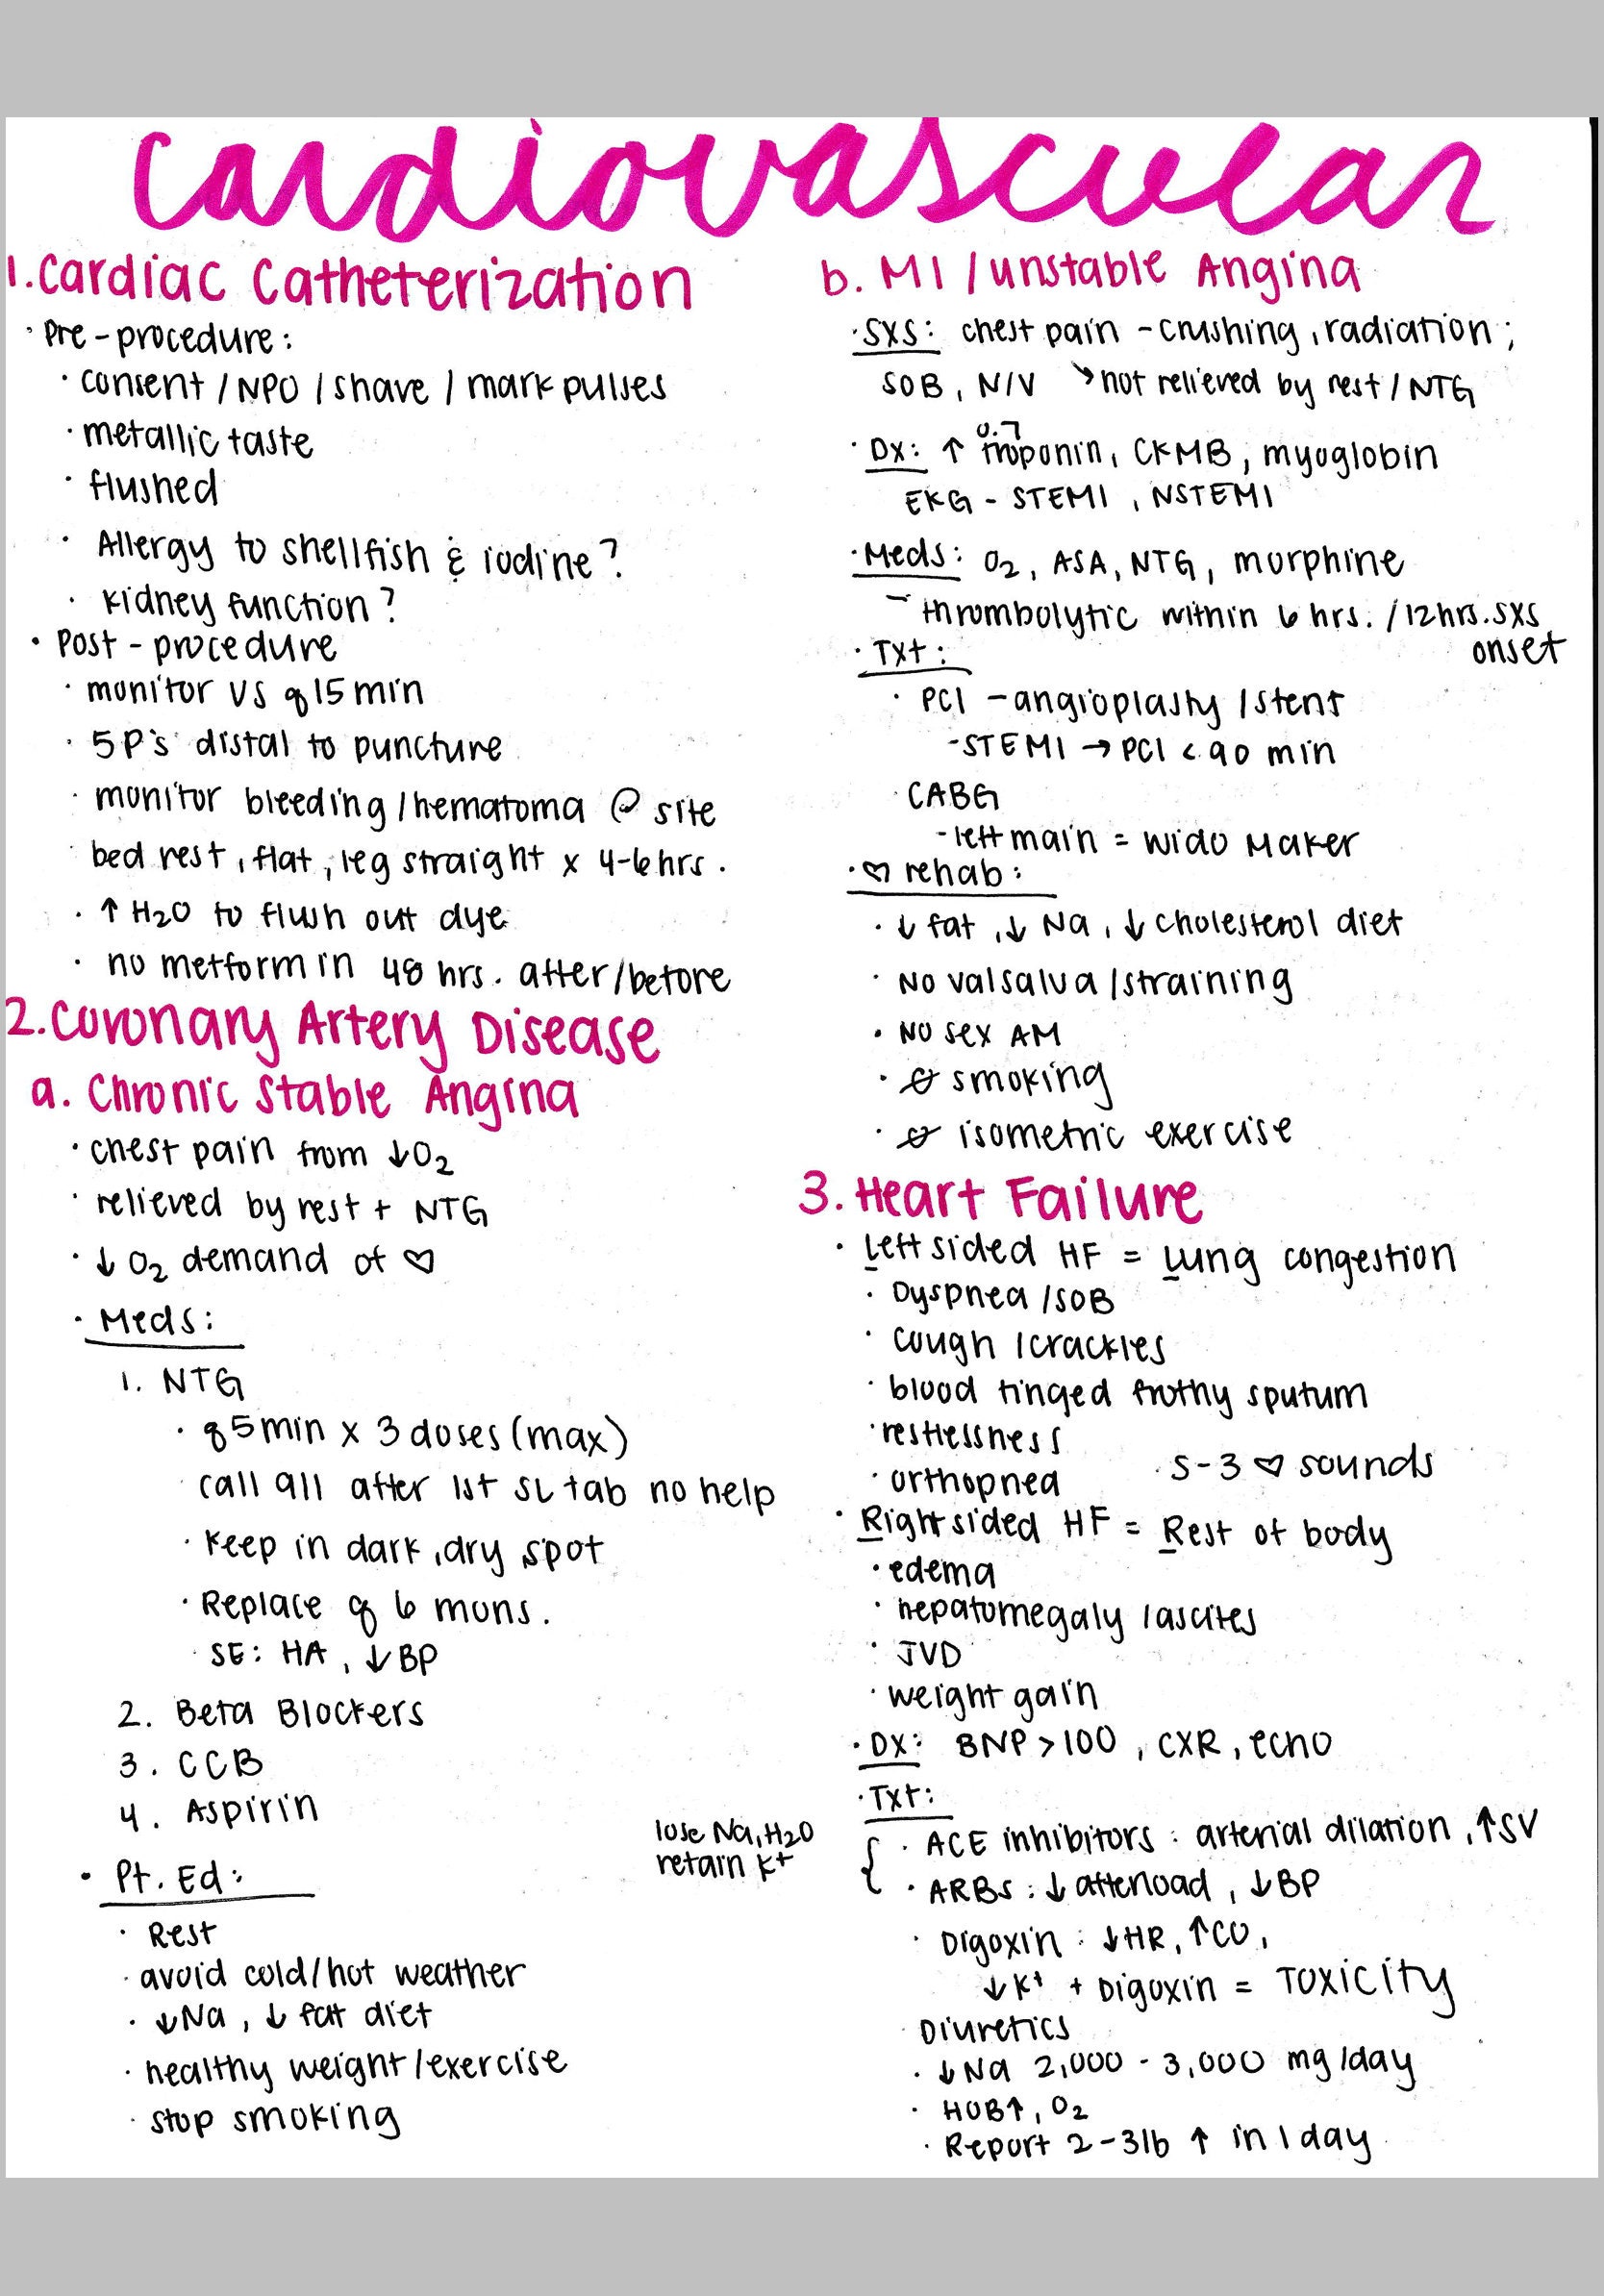 cardiovascular
1. Cardiac Catheterization
· Pre-procedure:
· consent / NPO / shave / mark pulses
· metallic taste
· flushed
· Allergy to shellfish & iodine?
· kidney function?
· Post-procedure
· monitor VS q15min
· 5P's distal to puncture
· monitor bleeding/hematoma @ site
· bed rest, flat, leg straight x 4-6hrs.
· ↑ H2O to flush out dye
· no metformin 48 hrs. after/before
2. Coronary Artery Disease
a. Chronic Stable Angina
· chest pain from ↓O2
· relieved by rest + NTG
· ↓ O2 demand of ♡
· Meds:
1. NTG
· q5min x 3 doses (max)
· call 911 after 1st SL tab no help
· Keep in dark, dry spot
· Replace q 6 mons.
· SE: HA, ↓BP
2. Beta Blockers
3. CCB
4. Aspirin
· Pt. Ed:
· Rest
· avoid cold/hot weather
· ↓Na, ↓ fat diet
· healthy weight/exercise
· stop smoking
b. MI / unstable Angina
· SXS: chest pain - crushing, radiation;
SOB, N/V ↘ not relieved by rest / NTG
0.7
· DX: ↑ troponin, CKMB, myoglobin
EKG - STEMI, NSTEMI
· Meds: O2, ASA, NTG, morphine
- thrombolytic within 6 hrs. / 12hrs. SXS
onset
· Txt:
· PCI - angioplasty / stent
- STEMI → PCI < 90 min
· CABG
- left main = Wido Maker
· ♡ rehab:
· ↓ fat, ↓ Na, ↓ cholesterol diet
· No valsalva / straining
· No sex AM
· ∅ smoking
· ∅ isometric exercise
3. Heart Failure
· Left sided HF = Lung congestion
· Dyspnea / SOB
· cough / crackles
· blood tinged frothy sputum
· restlessness
· orthopnea
· S-3 ♡ sounds
· Right sided HF = Rest of body
· edema
· hepatomegaly / ascites
· JVD
· weight gain
· DX: BNP > 100, CXR, echo
· Txt:
lose Na, H2O
retain K+
{ · ACE inhibitors: arterial dilation, ↑SV
· ARBs: ↓ afterload, ↓BP
· Digoxin: ↓HR, ↑CO,
↓K+ + Digoxin = TOXICITY
· Diuretics
· ↓Na 2,000 - 3,000 mg/day
· HOB↑, O2
· Report 2-3lb ↑ in 1 day